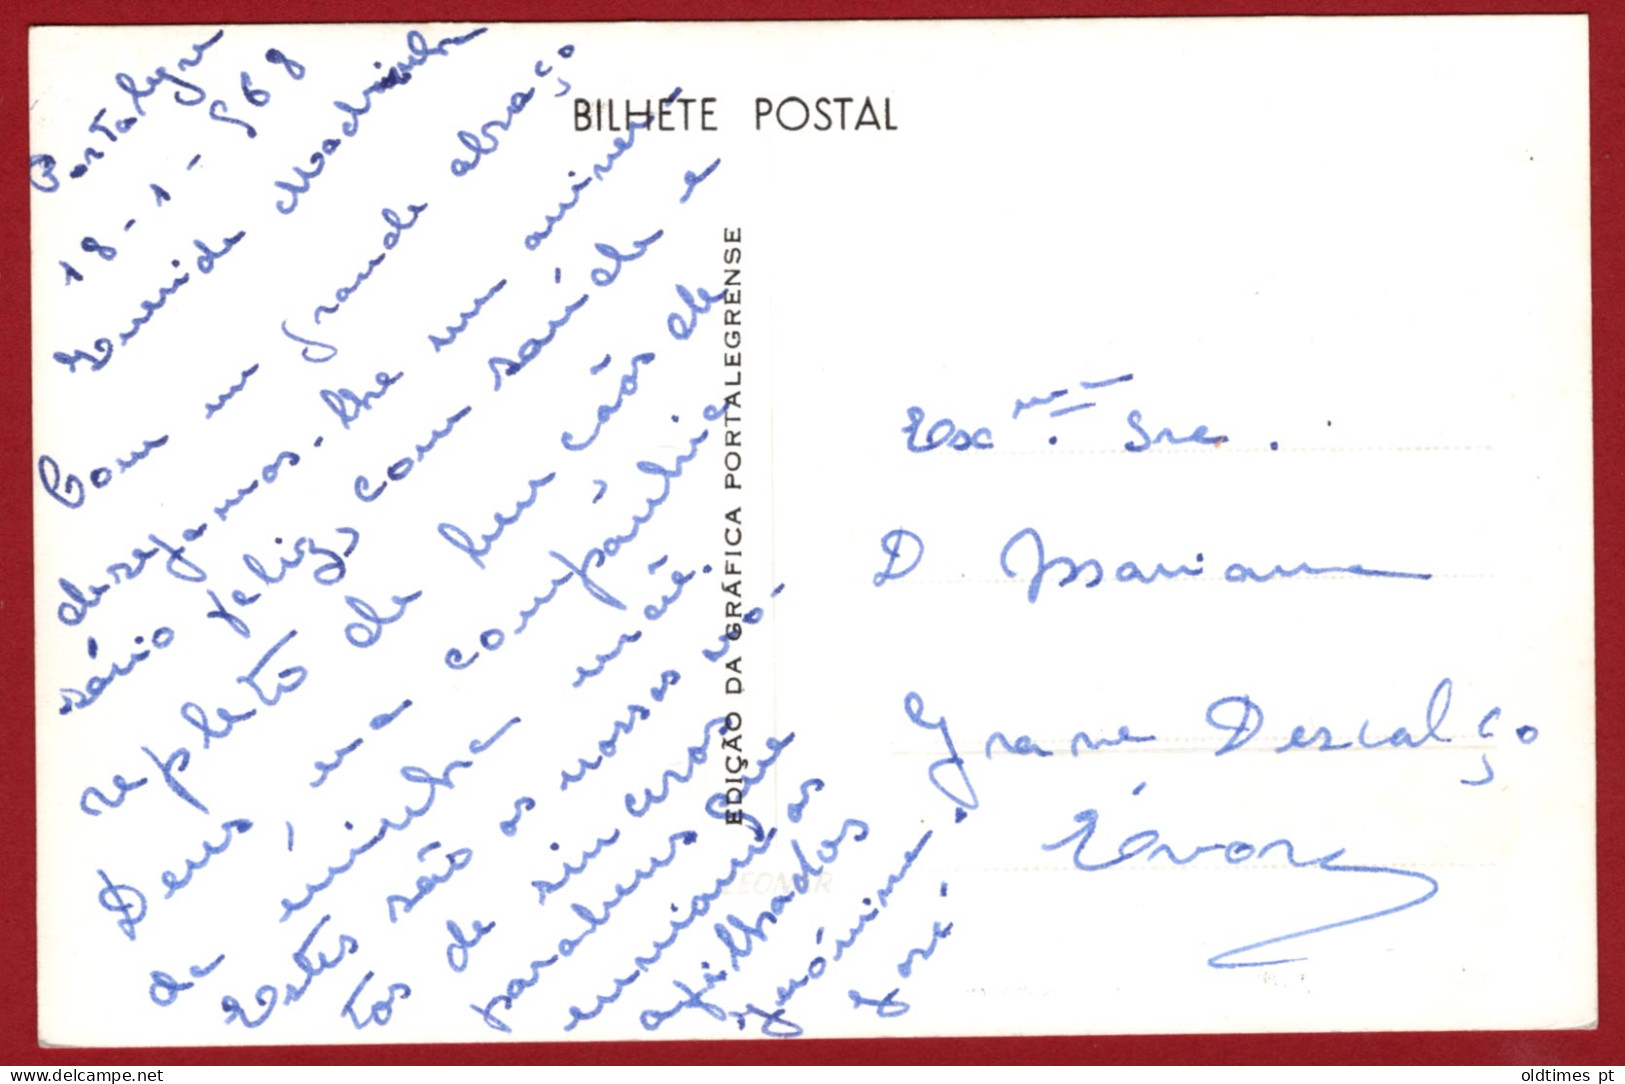 Portalegre
18-1-968
Querida Madrinha
Com um grande abraço
desejamos-lhe um aniver-
sário feliz, com saúde e
repleto de bençãos de
Deus, na companhia
da minha mãe.
Estes são os nossos vo-
tos de sinceros
parabens que
enviam os
afilhados
Jerónima.
José
BILHETE POSTAL
EDIÇÃO DA GRÁFICA PORTALEGRENSE
LEOMAR
Ex.ma Sra.
D Mariana
Graça Descalço
Évora
oldtimes pt